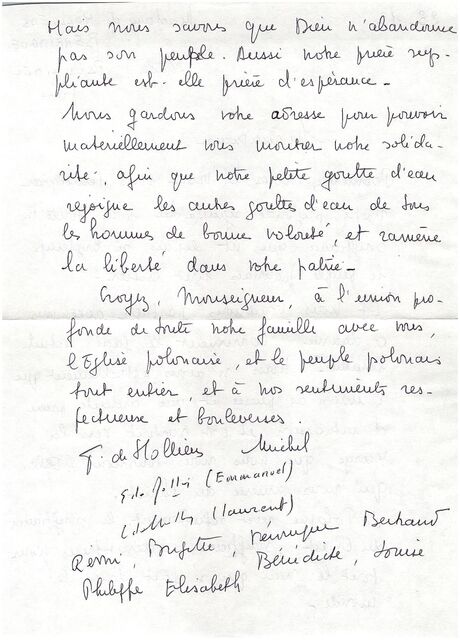 Mais nous savons que Dieu n'abandonne
pas son peuple. Aussi notre prière sup-
pliante est-elle prière d'espérance -
Nous gardons votre adresse pour pouvoir
matériellement vous montrer notre solida-
rité, afin que notre petite goutte d'eau
rejoigne les autres gouttes d'eau de tous
les hommes de bonne volonté, et ramène
la liberté dans votre patrie -
Croyez, Monseigneur, à l'union pro-
fonde de toute notre famille avec vous,
l'Eglise polonaise, et le peuple polonais
tout entier, et à nos sentiments res-
pectueux et bouleversés.
Michel
(Emmanuel)
(Laurent)
Rémi, Brigitte, Véronique Bertrand
Bénédicte, Louise
Philippe Elisabeth